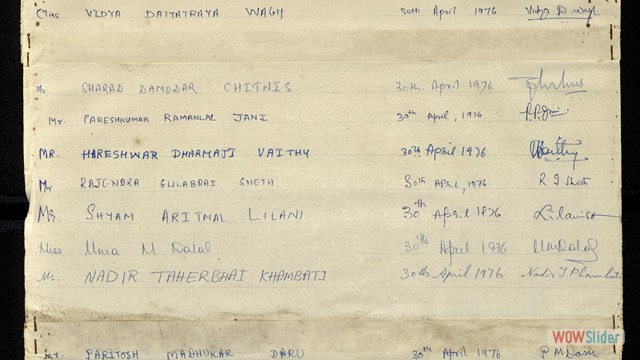 Miss VIDYA DATTATRAYA WAGH 30th April 1976 Vidya D. Wagh
Mr SHARAD DAMODAR CHITNIS 30th April 1976
Mr. PARESHKUMAR RAMANLAL JANI 30th April, 1976 P.R. Jani
MR. HARESHWAR DHARMAJI VAITHY 30th April 1976 Vaithy
Mr RAJENDRA GULABRAI SHETH 30th April, 1976 R G Sheth
Mr SHYAM ARITMAL LILANI 30th April 1976
Miss Uma M Dalal 30th April 1976 UMDalal
Mr. NADIR TAHERBHAI KHAMBATI 30th April 1976 Nadir T
Mr. PARITOSH MADHUKAR DARU 30th April 1976 P M Daru
WOWSlider